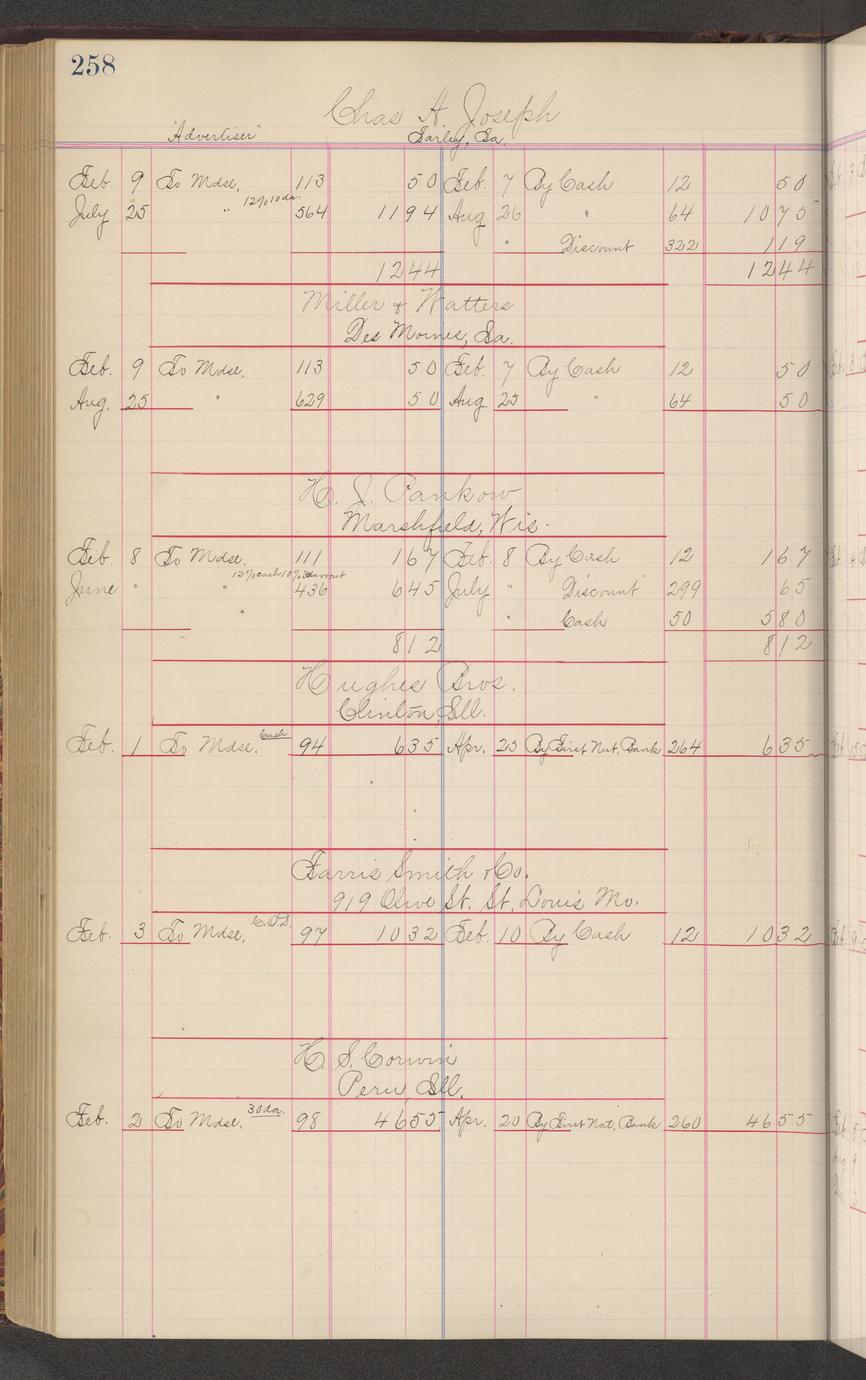 258
Chas A. Joseph
"Advertiser" Farley, Ia.
Feb. 9 To Mdse. 113 50 Feb. 7 By Cash 12 50
July 25 " 12% 10 da. 564 1194 Aug 26 " 64 1075
" Discount 322 119
1244 1244
Miller & Watters
Des Moines, Ia.
Feb. 9 To Mdse. 113 50 Feb. 7 By Cash 12 50
Aug. 25 " 629 50 Aug 25 " 64 50
H. J. Pankow
Marshfield, Wis.
Feb. 8 To Mdse. 111 167 Feb. 8 By Cash 12 167
June " " 12% cash 10% 30 da or net 436 645 July " Discount 299 65
" Cash 50 580
812 812
Hughes Bros.
Clinton, Ill.
Feb. 1 To Mdse. Cash 94 635 Apr. 25 By First Nat. Bank 264 635
Farris Smith & Co.
919 Olive St. St. Louis Mo.
Feb. 3 To Mdse. C.O.D. 97 1032 Feb. 10 By Cash 12 1032
H. S. Corwin
Peru, Ill.
Feb. 2 To Mdse. 30 da. 98 4655 Apr. 20 By First Nat. Bank 260 4655